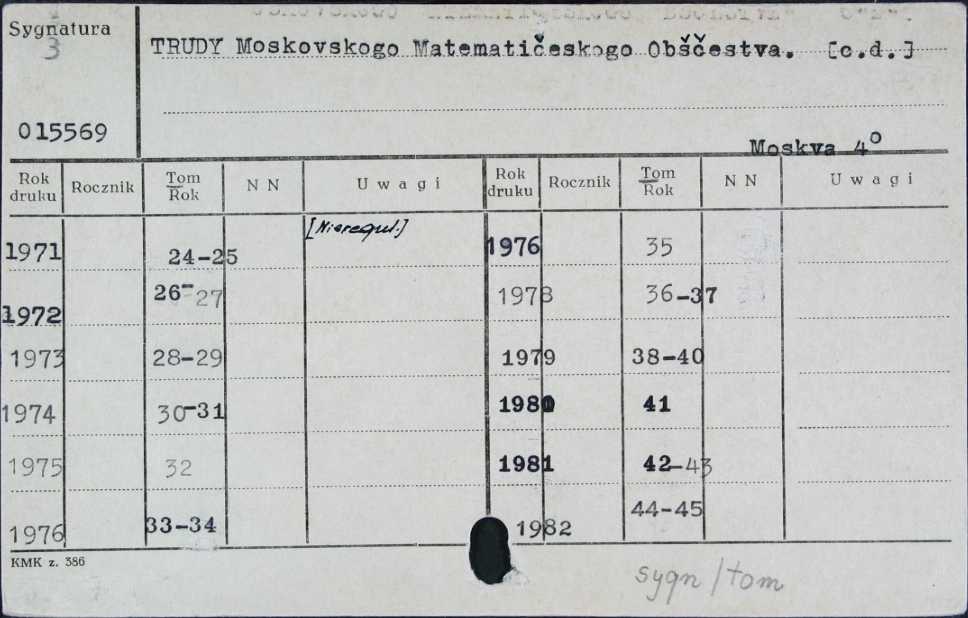 Sygnatura
3
015569
TRUDY Moskovskogo Matematičeskogo Obščestva. [c.d.]
Moskva 4°
Rok druku Rocznik Tom/Rok N N U w a g i Rok druku Rocznik Tom/Rok N N U w a g i
[Nieregul.]
1971 24-25 1976 35
1972 26-27 1978 36-37
1973 28-29 1979 38-40
1974 30-31 1980 41
1975 32 1981 42-43
1976 33-34 1982 44-45
KMK z. 386
sygn/tom